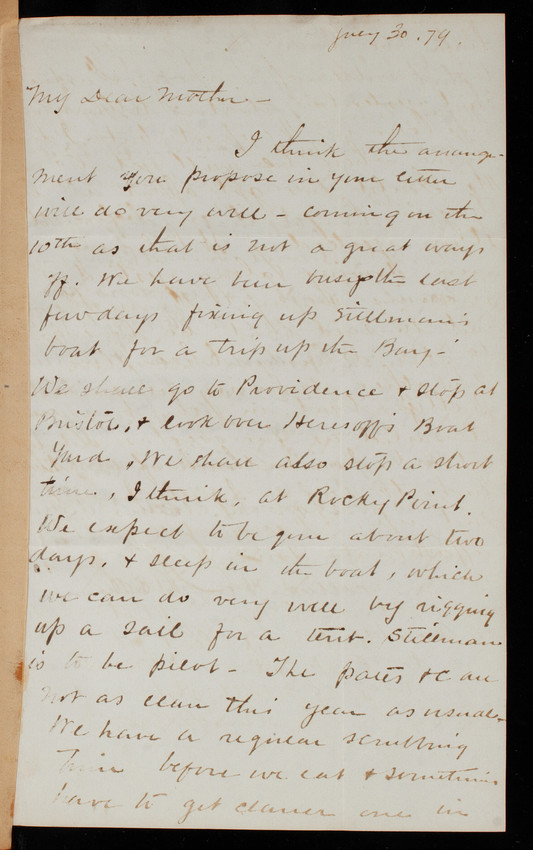 July 30. 79.
My Dear Mother –
I think the arrange-
ment you propose in your letter
will do very well – coming on the
10th as that is not a great ways
off. We have been busy the last
few days fixing up Stillman's
boat for a trip up the Bay –
We shall go to Providence & stop at
Bristol, & look over Heresoff's Boat
Yard. We shall also stop a short
time, I think, at Rocky Point.
We expect to be gone about two
days, & sleep in the boat, which
we can do very well by rigging
up a sail for a tent. Stillman
is to be pilot – The plates &c are
not as clean this year as usual –
We have a regular scrubbing
time before we eat & sometimes
have to get cleaner one in